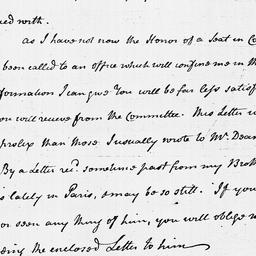 ed with.
as I have not now the Honor of a Seat in Co
been called to an office which will confine me in th
formation I can give You will be far less satisf
ou will recieve from the Committee. This Letter w
prolix than those I usually wrote to Mr. Dean
By a Letter recd. sometime past from my Broth
is lately in Paris, & may be so still. If you
or seen any thing of him, you will oblige m
ing the enclosed Letter to him